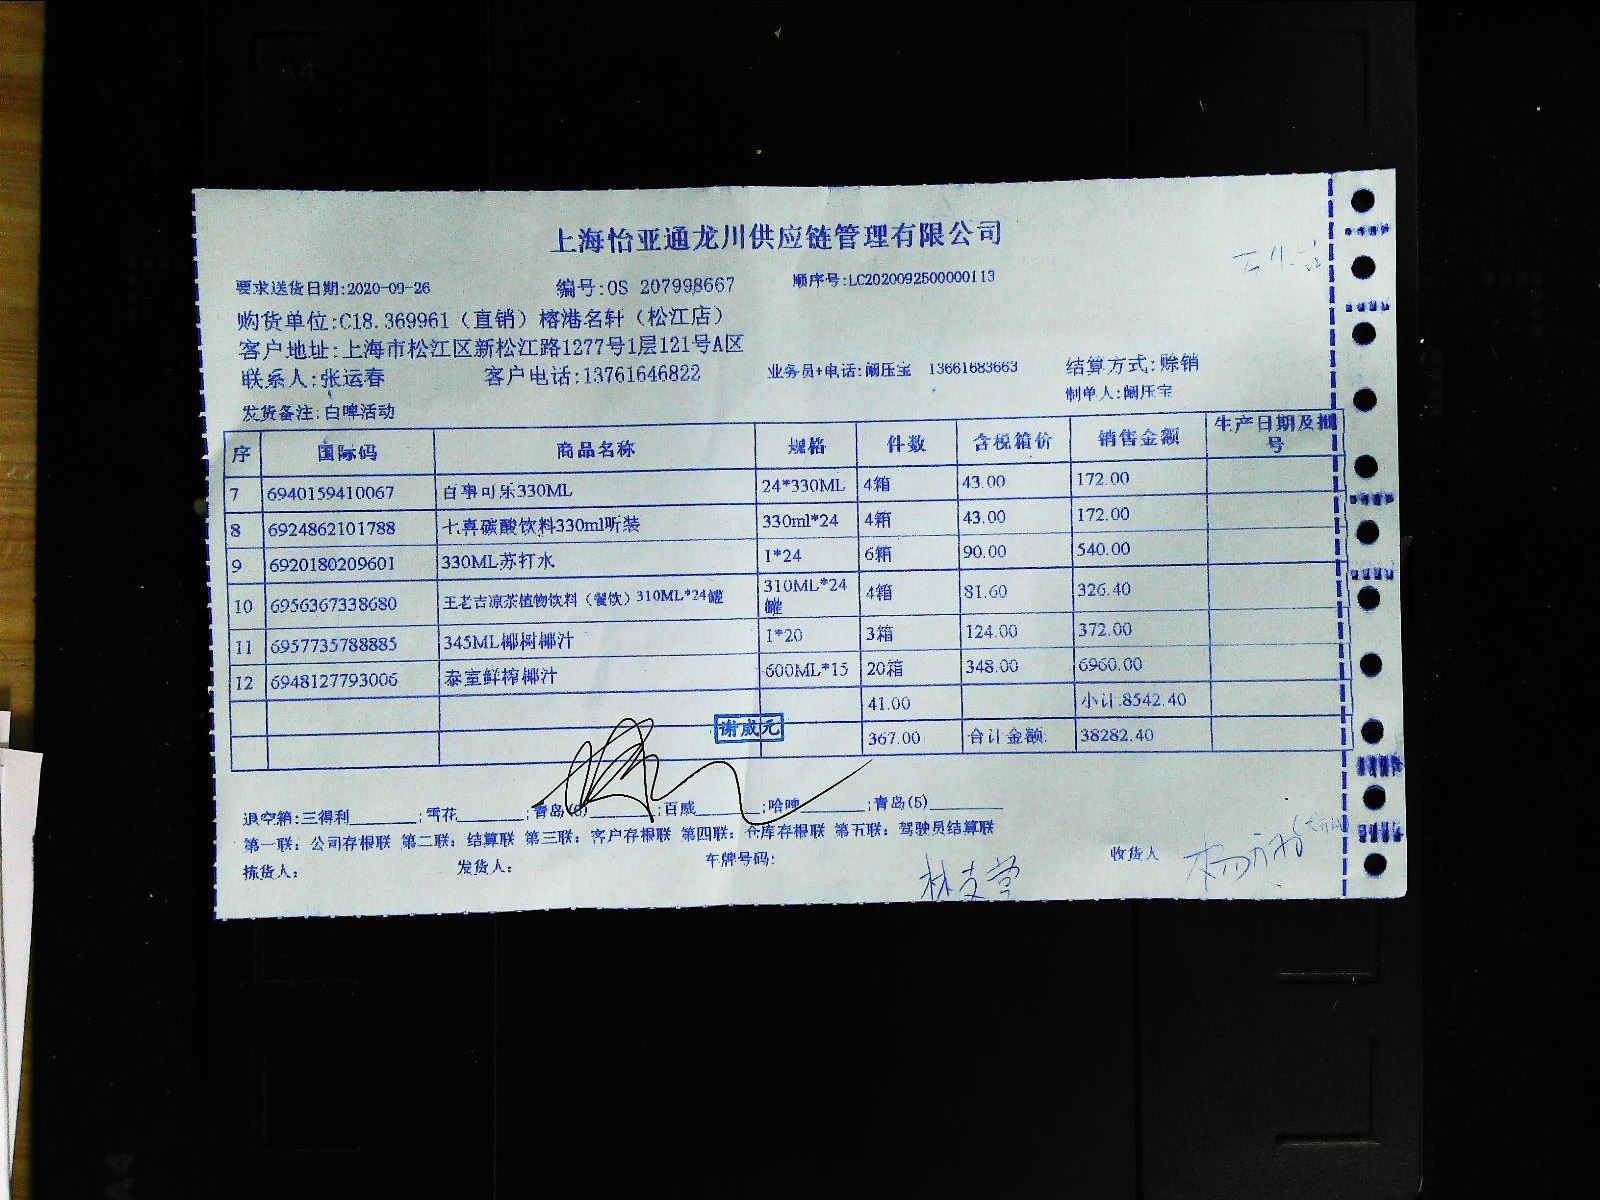 A4
上海怡亚通龙川供应链管理有限公司
要求送货日期:2020-09-26 编号:OS 207998667 顺序号:LC2020092500000113
购货单位:C18.369961（直销）榕港名轩（松江店）
客户地址:上海市松江区新松江路1277号1层121号A区
联系人:张运春 客户电话:13761646822 业务员+电话:阚压宝 13661683663 结算方式:赊销
制单人:阚压宝
发货备注:白啤活动
序 国际码 商品名称 规格 件数 含税箱价 销售金额 生产日期及批号
7 6940159410067 百事可乐330ML 24*330ML 4箱 43.00 172.00
8 6924862101788 七喜碳酸饮料330ml听装 330ml*24 4箱 43.00 172.00
9 6920180209601 330ML苏打水 1*24 6箱 90.00 540.00
10 6956367338680 王老吉凉茶植物饮料（餐饮）310ML*24罐 310ML*24罐 4箱 81.60 326.40
11 6957735788885 345ML椰树椰汁 1*20 3箱 124.00 372.00
12 6948127793006 泰室鲜榨椰汁 600ML*15 20箱 348.00 6960.00
41.00 小计:8542.40
367.00 合计金额: 38282.40
谢威元
退空箱:三得利______;雪花______;青岛(6)______;百威______;哈啤______;青岛(5)______
第一联：公司存根联 第二联：结算联 第三联：客户存根联 第四联：仓库存根联 第五联：驾驶员结算联
拣货人： 发货人： 车牌号码: 收货人